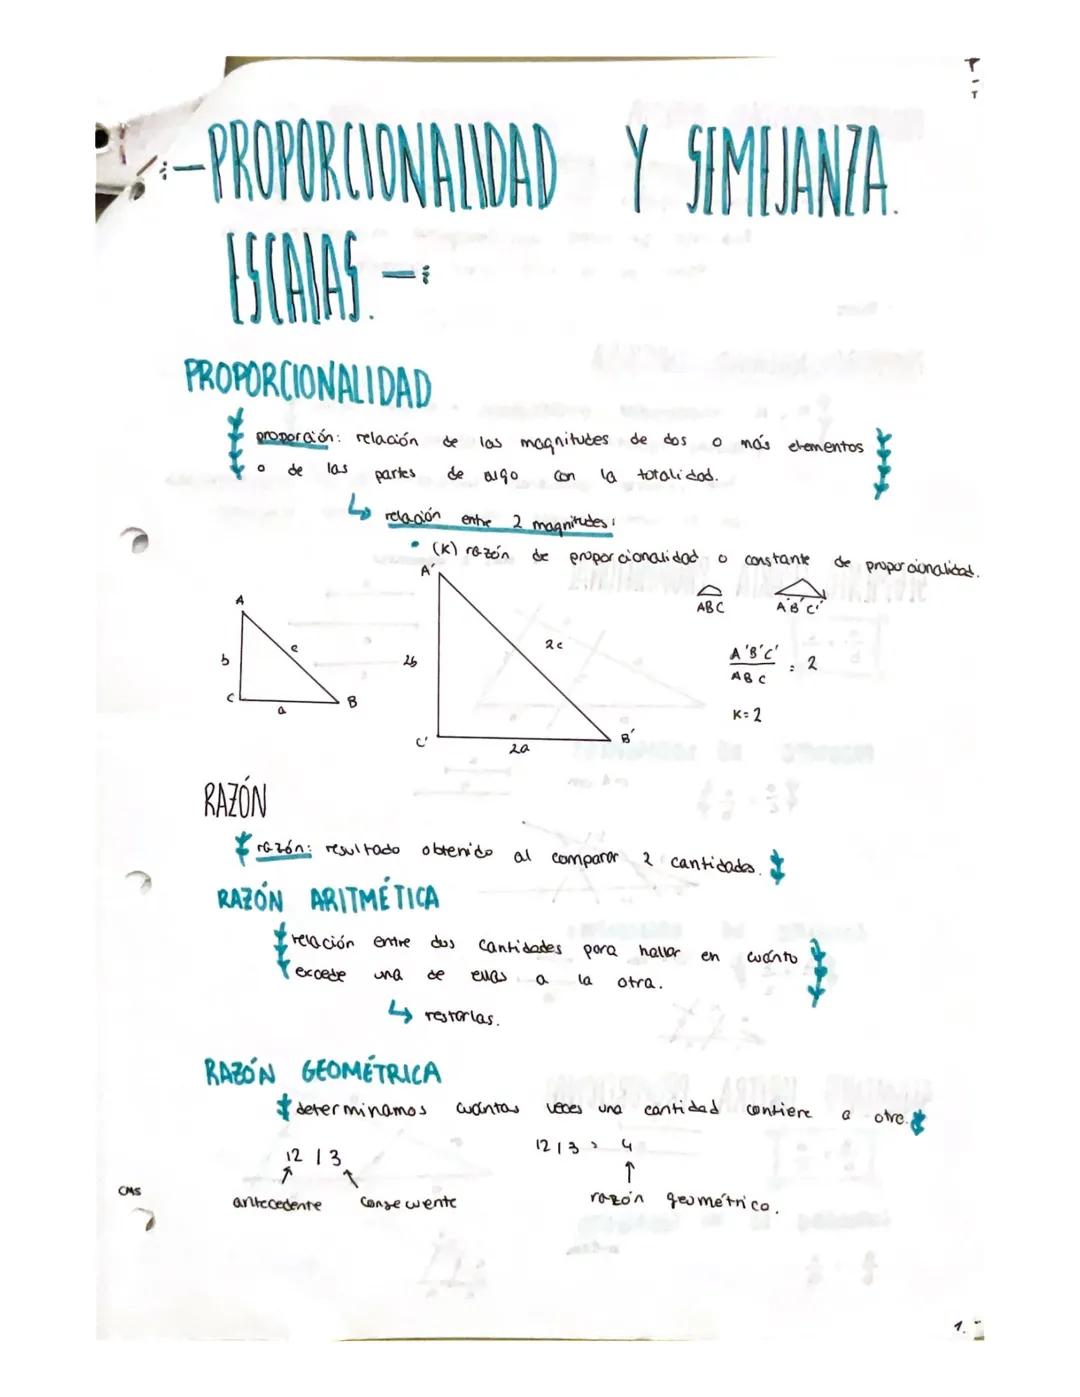 -PROPORCIONALIDAD Y SEMEJANZA.
ESCALAS.-
PROPORCIONALIDAD
proporción: relación de las magnitudes de dos o más elementos
o de las partes de algo con la totalidad.
relación entre 2 magnitudes:
• (K) razón de proporcionalidad o constante de proporcionalidad.
A
b
c
C
a
B
A'
2b
2c
C'
2a
B'
ABC
A'B'C'
A'B'C'
ABC
= 2
K=2
RAZÓN
razón: resultado obtenido al comparar 2 cantidades.
RAZÓN ARITMÉTICA
relación entre dos cantidades para hallar en cuánto
excede una de ellas a la otra.
restarlas.
RAZÓN GEOMÉTRICA
determinamos cuántas veces una cantidad contiene a otra.
12 | 3
12 | 3 = 4
antecedente
consecuente
razón geométrica.
CMS
1.